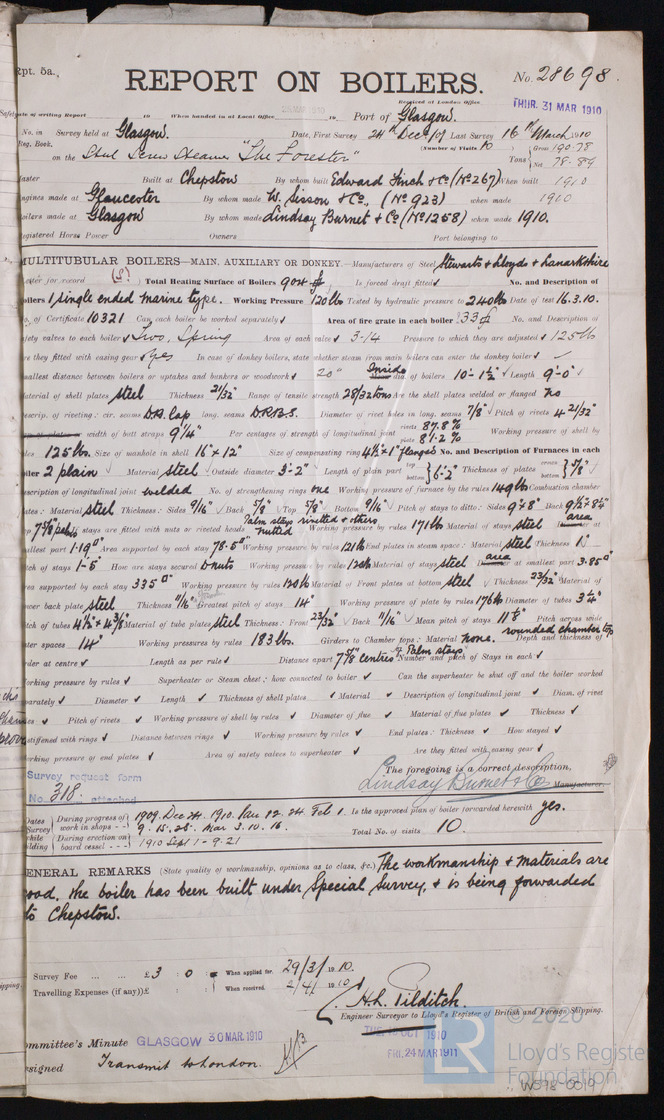 Rpt. 5a.,
REPORT ON BOILERS.
No. 28698.
Received at London Office
THUR. 31 MAR 1910
Date of writing Report 19 When handed in at Local Office 19 Port of Glasgow.
No. in Survey held at Glasgow. Date, First Survey 24th Dec. /09 Last Survey 16th March 1910
Reg. Book. (Number of Visits 10)
on the Steel Screw Steamer "The Forester" Tons { Gross 190.78 Net 78.89
Master Built at Chepstow By whom built Edward Finch & Co (No 267) When built 1910
Engines made at Gloucester By whom made W. Sisson & Co., (No 923) when made 1910
Boilers made at Glasgow By whom made Lindsay Burnet & Co (No 1258) when made 1910.
Registered Horse Power Owners Port belonging to
MULTITUBULAR BOILERS—MAIN, AUXILIARY OR DONKEY.—Manufacturers of Steel Stewarts & Lloyds & Lanarkshire
Letter for record (S) Total Heating Surface of Boilers 904 Is forced draft fitted No. and Description of
Boilers 1 single ended marine type. Working Pressure 120 lb Tested by hydraulic pressure to 240 lb Date of test 16.3.10.
No. of Certificate 10321 Can each boiler be worked separately Area of fire grate in each boiler 33 No. and Description of
safety valves to each boiler Two, Spring Area of each valve 3.14 Pressure to which they are adjusted 125 lb
Are they fitted with easing gear yes In case of donkey boilers, state whether steam from main boilers can enter the donkey boiler
Smallest distance between boilers or uptakes and bunkers or woodwork 20" Inside dia. of boilers 10'-1½" Length 9'-0"
Material of shell plates steel Thickness 21/32" Range of tensile strength 28/32 tons Are the shell plates welded or flanged no
Descrip. of riveting: cir. seams D.R. Lap long. seams D.R.B.S. Diameter of rivet holes in long. seams 7/8" Pitch of rivets 4 21/32"
width of butt straps 9¼" Per centages of strength of longitudinal joint rivets 87.8% plate 81.2% Working pressure of shell by
rules 125 lb. Size of manhole in shell 16" x 12" Size of compensating ring 4½" x 1" flanged No. and Description of Furnaces in each
boiler 2 plain Material steel Outside diameter 3'-2" Length of plain part top bottom } 6'-2" Thickness of plates crown bottom }
Description of longitudinal joint welded No. of strengthening rings one Working pressure of furnace by the rules 149 lb Combustion chamber
plates: Material steel Thickness: Sides 9/16" Back 5/8" Top 5/8" Bottom 9/16" Pitch of stays to ditto: Sides 9" x 8" Back 9½" x 8¼"
Top 7 5/8 If stays are fitted with nuts or riveted heads Palm stays rivetted & others nutted Working pressure by rules 171 lb Material of stays steel area at
smallest part 1.19" Area supported by each stay 78.5" Working pressure by rules 121 lb End plates in steam space: Material steel Thickness 1"
Pitch of stays 1'-5" How are stays secured D nuts Working pressure by rules 120 lb Material of stays steel area at smallest part 3.85"
Area supported by each stay 335" Working pressure by rules 120 lb Material of Front plates at bottom steel Thickness 23/32" Material of
Lower back plate steel Thickness 11/16" Greatest pitch of stays 14" Working pressure of plate by rules 176 lb Diameter of tubes 3¼"
Pitch of tubes 4½" x 4 3/8" Material of tube plates steel Thickness: Front 23/32" Back 11/16" Mean pitch of stays Pitch across wide
water spaces 14" Working pressures by rules 183 lb. Girders to Chamber tops: Material none. rounded chamber top Depth and thickness of
girder at centre Length as per rule Distance apart 7 5/8" centres of Palm stays Number and pitch of Stays in each
Working pressure by rules Superheater or Steam chest; how connected to boiler Can the superheater be shut off and the boiler worked
separately Diameter Length Thickness of shell plates Material Description of longitudinal joint Diam. of rivet
holes Pitch of rivets Working pressure of shell by rules Diameter of flue Material of flue plates Thickness
If stiffened with rings Distance between rings Working pressure by rules End plates: Thickness How stayed
Working pressure of end plates Area of safety valves to superheater Are they fitted with easing gear
Survey request form
No. 318. attached
The foregoing is a correct description,
Lindsay Burnet & Co Manufacturer.
Dates of Survey while building
During progress of work in shops - - } 1909. Dec. 24. 1910. Jan. 12. 24. Feb. 1. 9. 15. 25. Mar. 3. 10. 16. Is the approved plan of boiler forwarded herewith yes.
During erection on board vessel - - - } 1910 Sept 1 - 9. 21 Total No. of visits 10.
GENERAL REMARKS (State quality of workmanship, opinions as to class, &c.) The workmanship & materials are
good, the boiler has been built under Special Survey, & is being forwarded
to Chepstow.
Survey Fee ... ... £3 : 0 : When applied for. 29/3/1910.
Travelling Expenses (if any) £ : : When received. 2/4/1910
H. L. Pilditch.
Engineer Surveyor to Lloyd's Register of British and Foreign Shipping.
Committee's Minute GLASGOW 30 MAR. 1910
OCT 1910
FRI. 24 MAR 1911
Assigned Transmit to London.
© 2020
LR
Lloyd's Register
Foundation
W598-0019